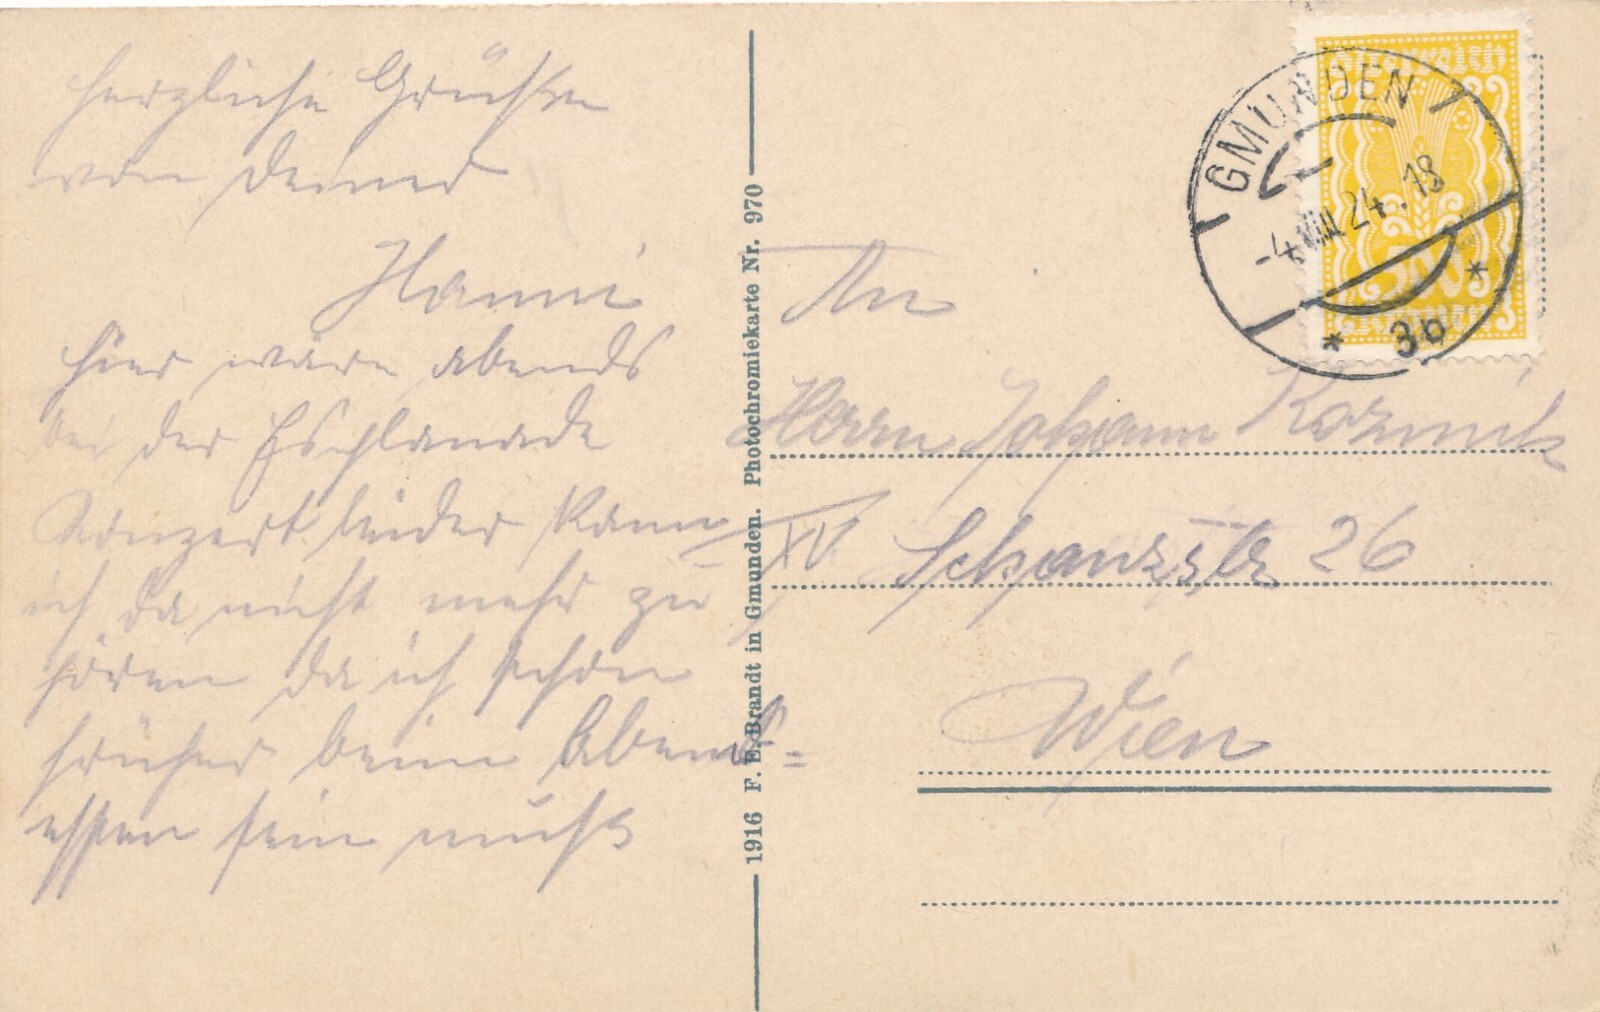 herzliche Grüßen
von Deiner
Hanni
hier wäre abends
bei der Esplanade
Konzert leider kann
ich da nicht mehr zu
hören da ich schon
früher beim Abend=
essen sein muß
1916 F. E. Brandt in Gmunden. Photochromiekarte Nr. 970
GMUNDEN 1
-4.VIII.24.18
* 3b *
500
An
Herrn Johann
XV. Schanzstr 26
Wien